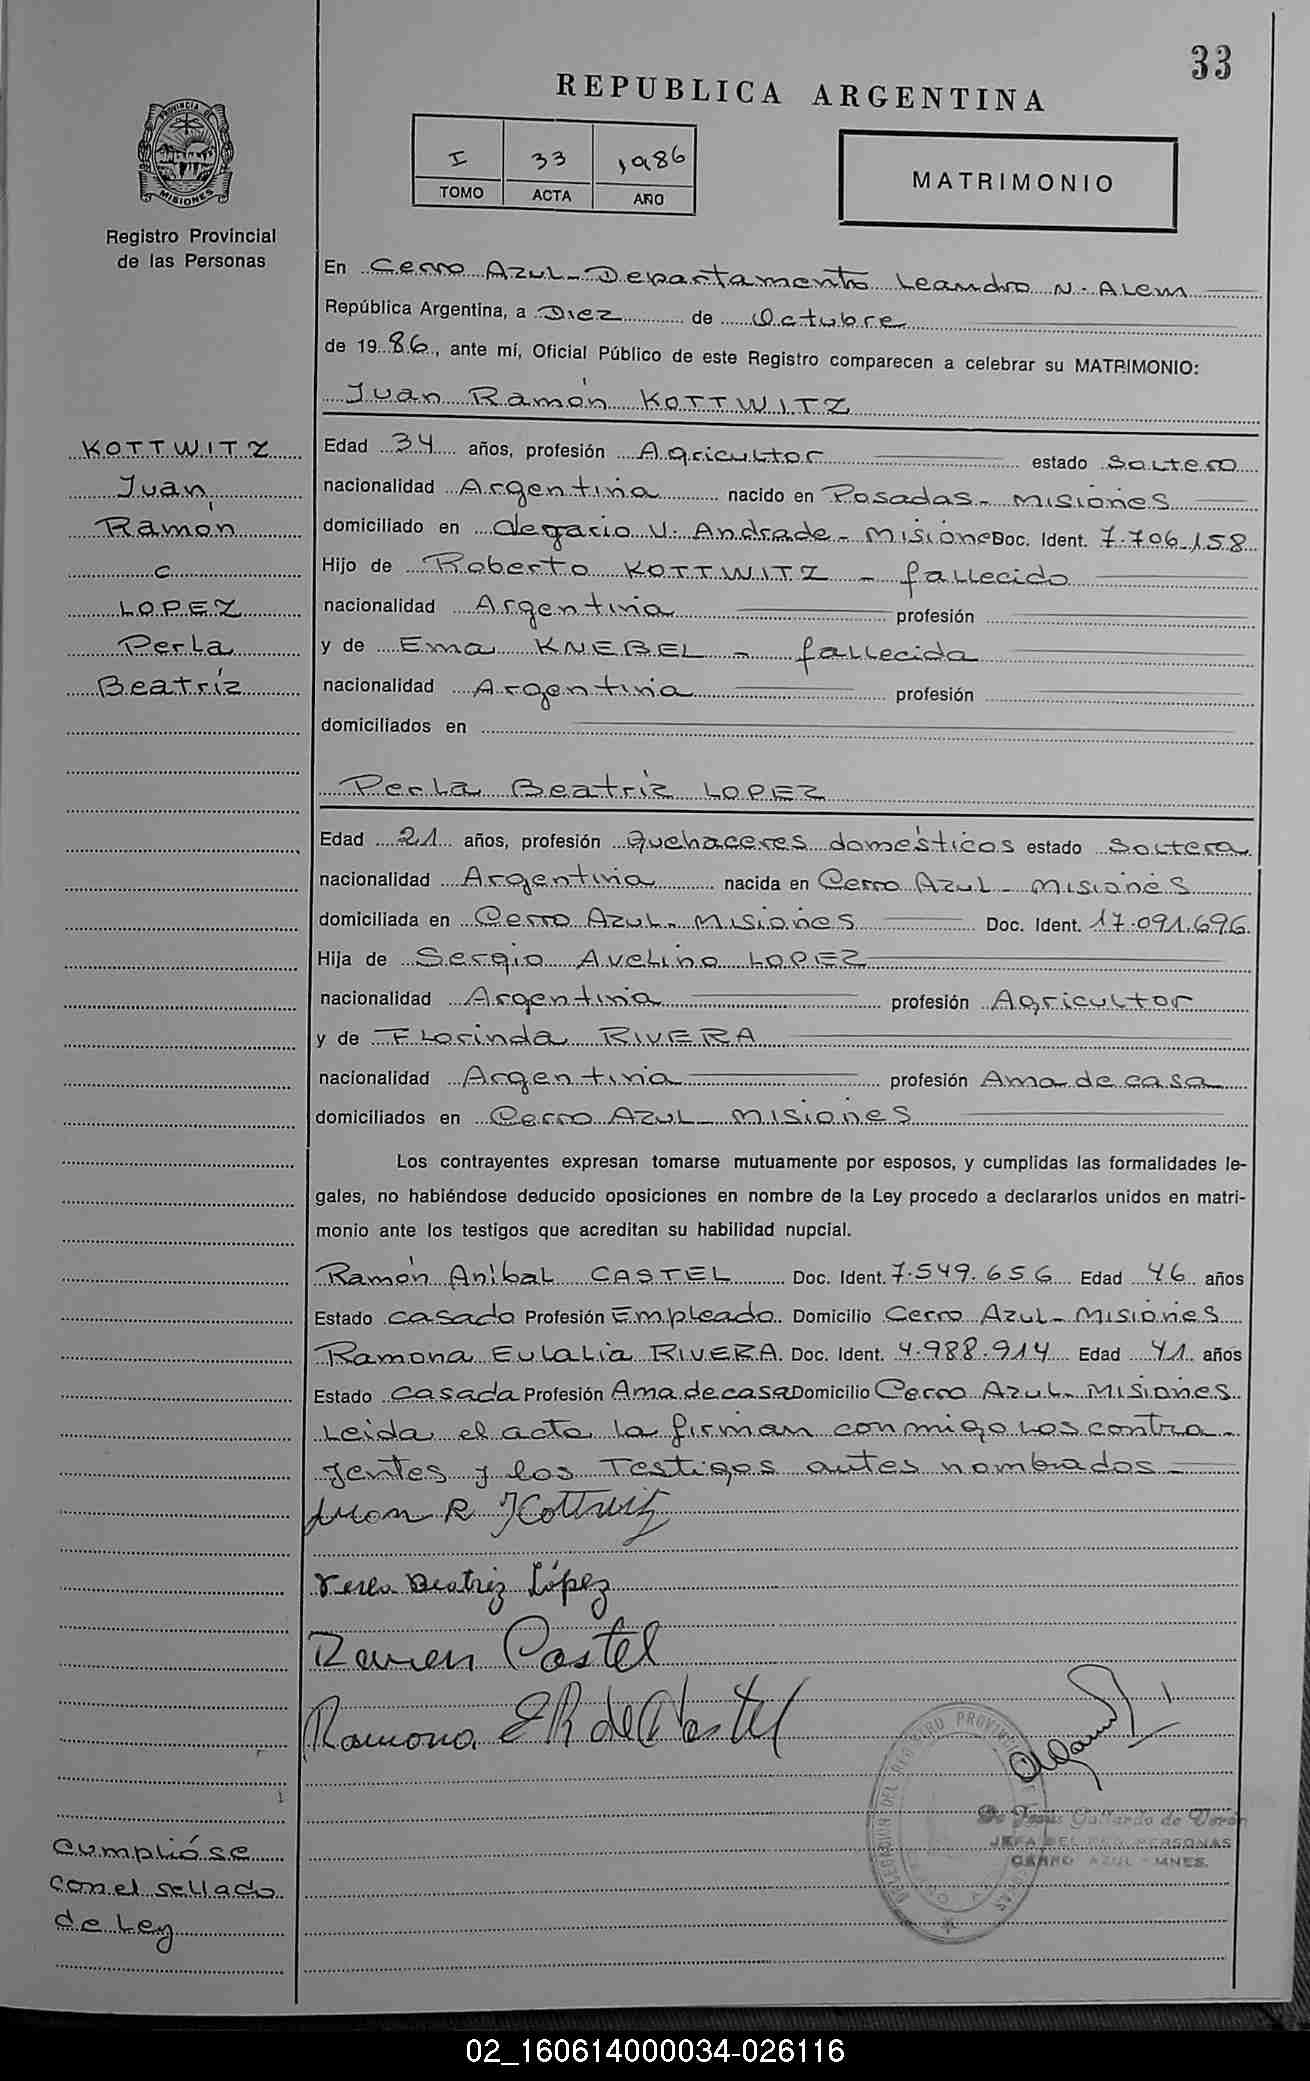 33
REPUBLICA ARGENTINA
PROVINCIA DE
MISIONES
Registro Provincial
de las Personas
I 33 1986
TOMO ACTA AÑO
MATRIMONIO
En Cerro Azul - Departamento Leandro N. Alem
República Argentina, a Diez de Octubre
de 1986, ante mí, Oficial Público de este Registro comparecen a celebrar su MATRIMONIO:
Juan Ramón KOTTWITZ
KOTTWITZ
Juan
Ramón
c
LOPEZ
Perla
Beatríz
Edad 34 años, profesión Agricultor estado Soltero
nacionalidad Argentina nacido en Posadas - Misiones
domiciliado en Olegario V. Andrade - Misiones Doc. Ident. 7.706.158
Hijo de Roberto KOTTWITZ - fallecido
nacionalidad Argentina profesión
y de Ema KNEBEL - fallecida
nacionalidad Argentina profesión
domiciliados en
Perla Beatriz LOPEZ
Edad 21 años, profesión Quehaceres domésticos estado Soltera
nacionalidad Argentina nacida en Cerro Azul - Misiones
domiciliada en Cerro Azul - Misiones Doc. Ident. 17.091.696
Hija de Sergio Avelino LOPEZ
nacionalidad Argentina profesión Agricultor
y de Florinda RIVERA
nacionalidad Argentina profesión Ama de casa
domiciliados en Cerro Azul - Misiones
Los contrayentes expresan tomarse mutuamente por esposos, y cumplidas las formalidades le-
gales, no habiéndose deducido oposiciones en nombre de la Ley procedo a declararlos unidos en matri-
monio ante los testigos que acreditan su habilidad nupcial.
Ramón Aníbal CASTEL Doc. Ident. 7.549.656 Edad 46 años
Estado casado Profesión Empleado Domicilio Cerro Azul - Misiones
Ramona Eulalia RIVERA Doc. Ident. 4.988.914 Edad 41 años
Estado casada Profesión Ama de casa Domicilio Cerro Azul - Misiones
Leida el acta la firman conmigo los contra-
yentes y los Testigos antes nombrados -
Juan R Kottwitz
Perla Beatriz López
Ramon Castel
Ramona E R de Castel
DELEGACION DEL REGISTRO PROVINCIAL DE LAS PERSONAS
De Jesús Gallardo de Verón
JEFA DEL REG. PERSONAS
CERRO AZUL - MNES.
Cumplióse
con el sellado
de Ley
02_160614000034-026116